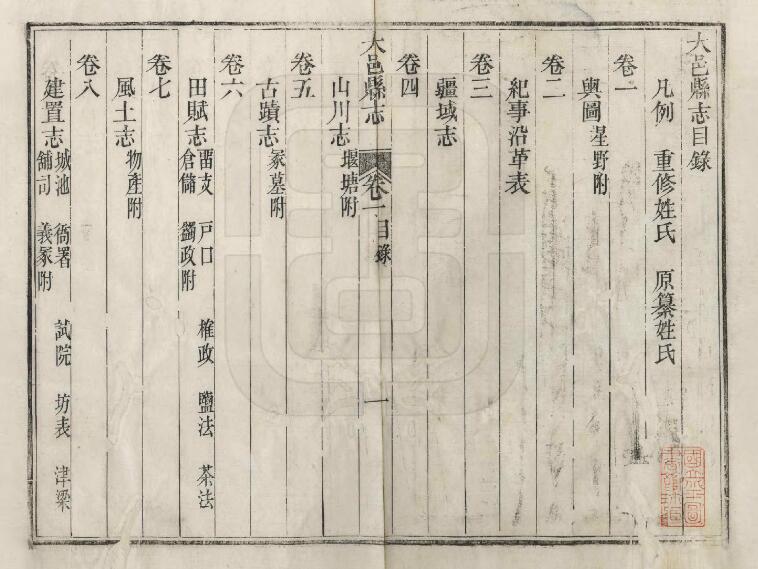 大邑縣志目錄
凡例 重修姓氏 原纂姓氏
卷一
輿圖 星野附
卷二
紀事沿革表
卷三
疆域志
卷四
大邑縣志 卷一目錄 一
山川志 堰塘附
卷五
古蹟志 冢墓附
卷六
田賦志 留支 戶口 榷政 鹽法 茶法
倉儲 蠲政附
卷七
風土志 物產附
卷八
建置志 城池 衙署 試院 坊表 津梁
舖司 義冢附